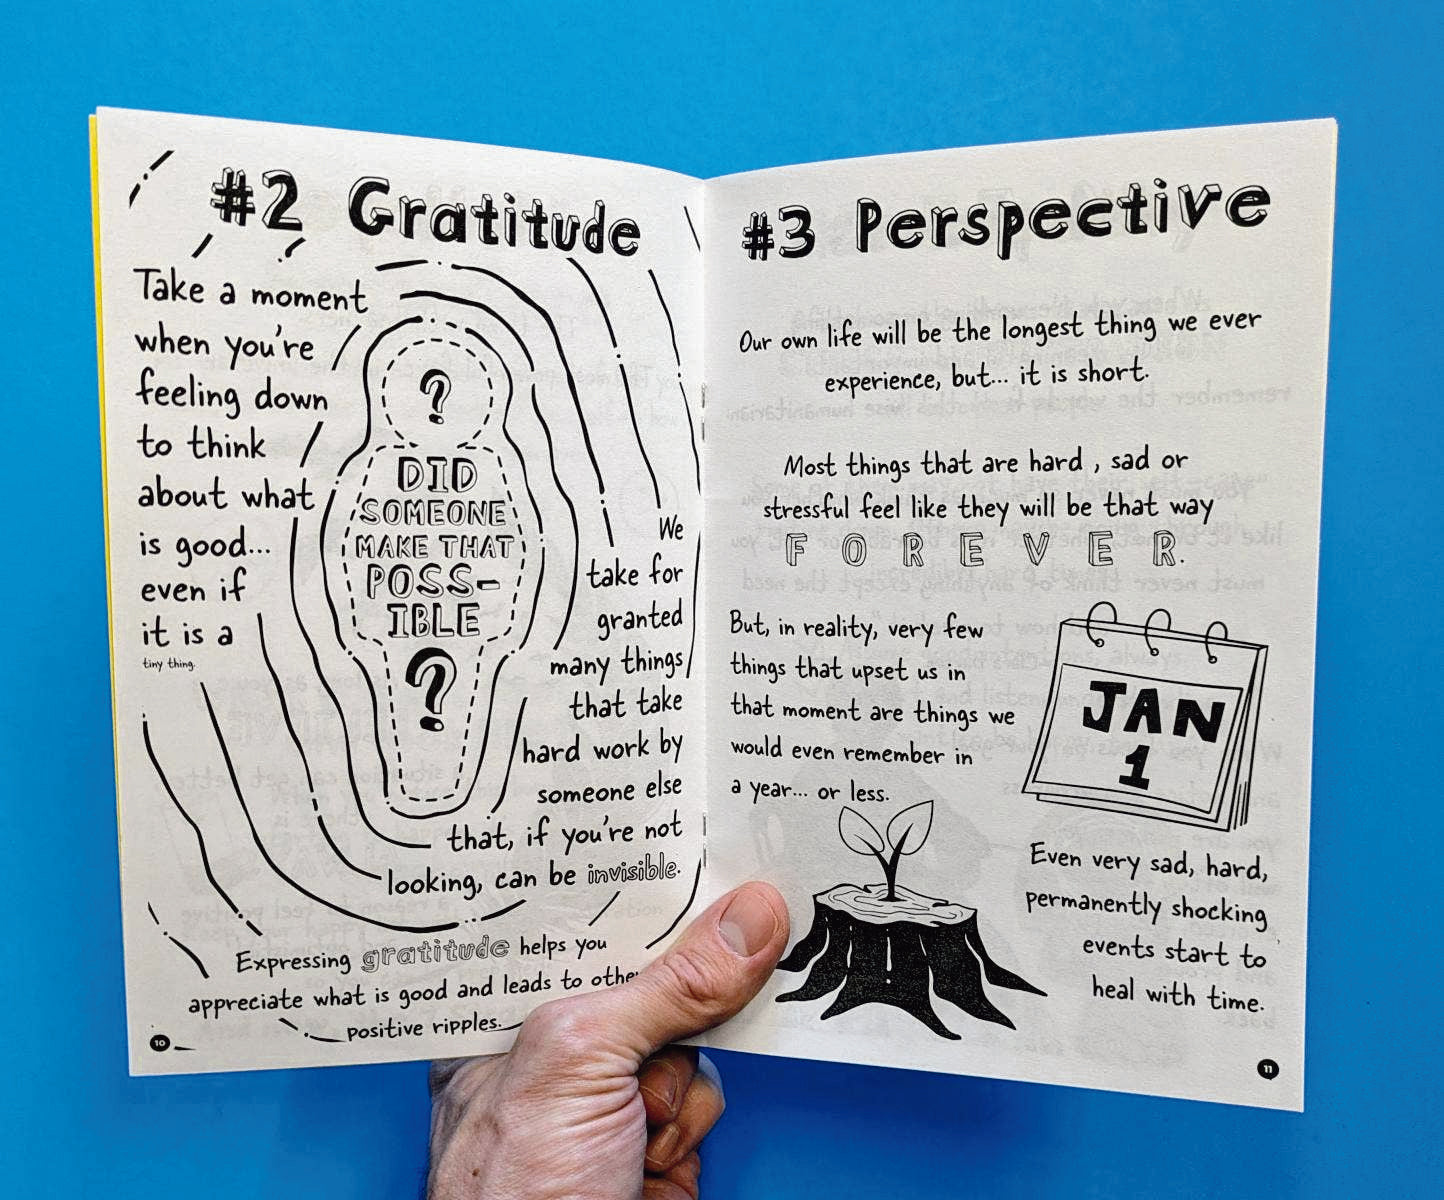 #2 Gratitude
Take a moment
when you're
feeling down
to think
about what
is good...
even if
it is a
tiny thing.
?
DID
SOMEONE
MAKE THAT
POSS-
IBLE
?
We
take for
granted
many things
that take
hard work by
someone else
that, if you're not
looking, can be invisible.
Expressing gratitude helps you
appreciate what is good and leads to othe
positive ripples.
10
#3 Perspective
Our own life will be the longest thing we ever
experience, but... it is short.
Most things that are hard , sad or
stressful feel like they will be that way
FOREVER.
But, in reality, very few
things that upset us in
that moment are things we
would even remember in
a year... or less.
JAN
1
Even very sad, hard,
permanently shocking
events start to
heal with time.
11